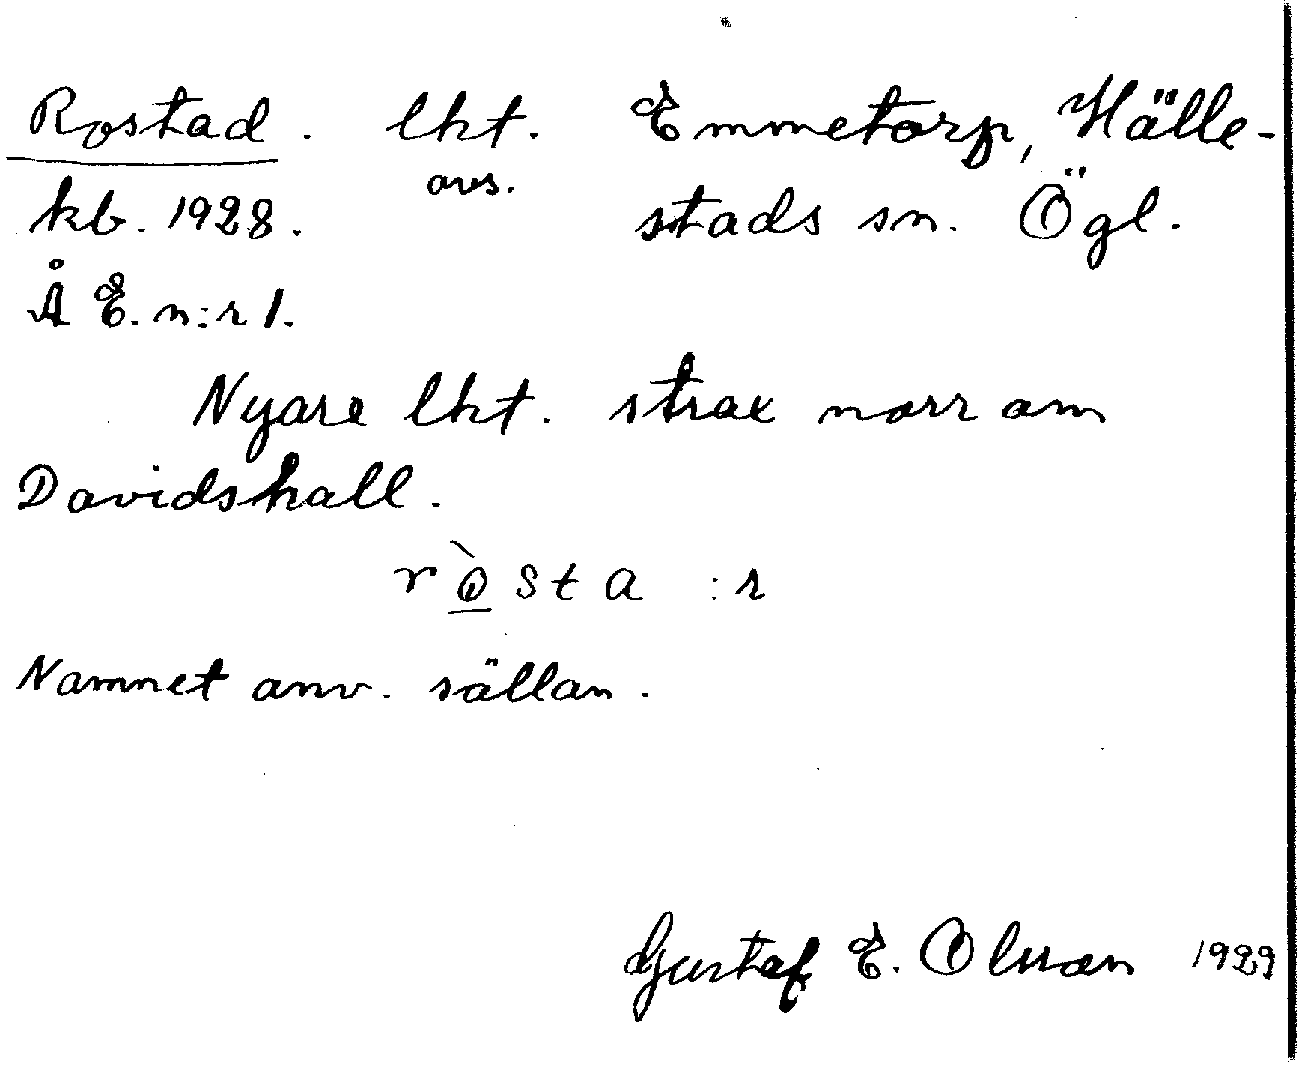 Rostad. lht. Emmetorp, Hälle-
avs.
kb. 1928. stads sn. Ögl.
Å E. n:r 1.
Nyare lht. strax norr om
Davidshall.
rò̲sta :r
Namnet anv. sällan.
Gustaf E. Olsson 1929